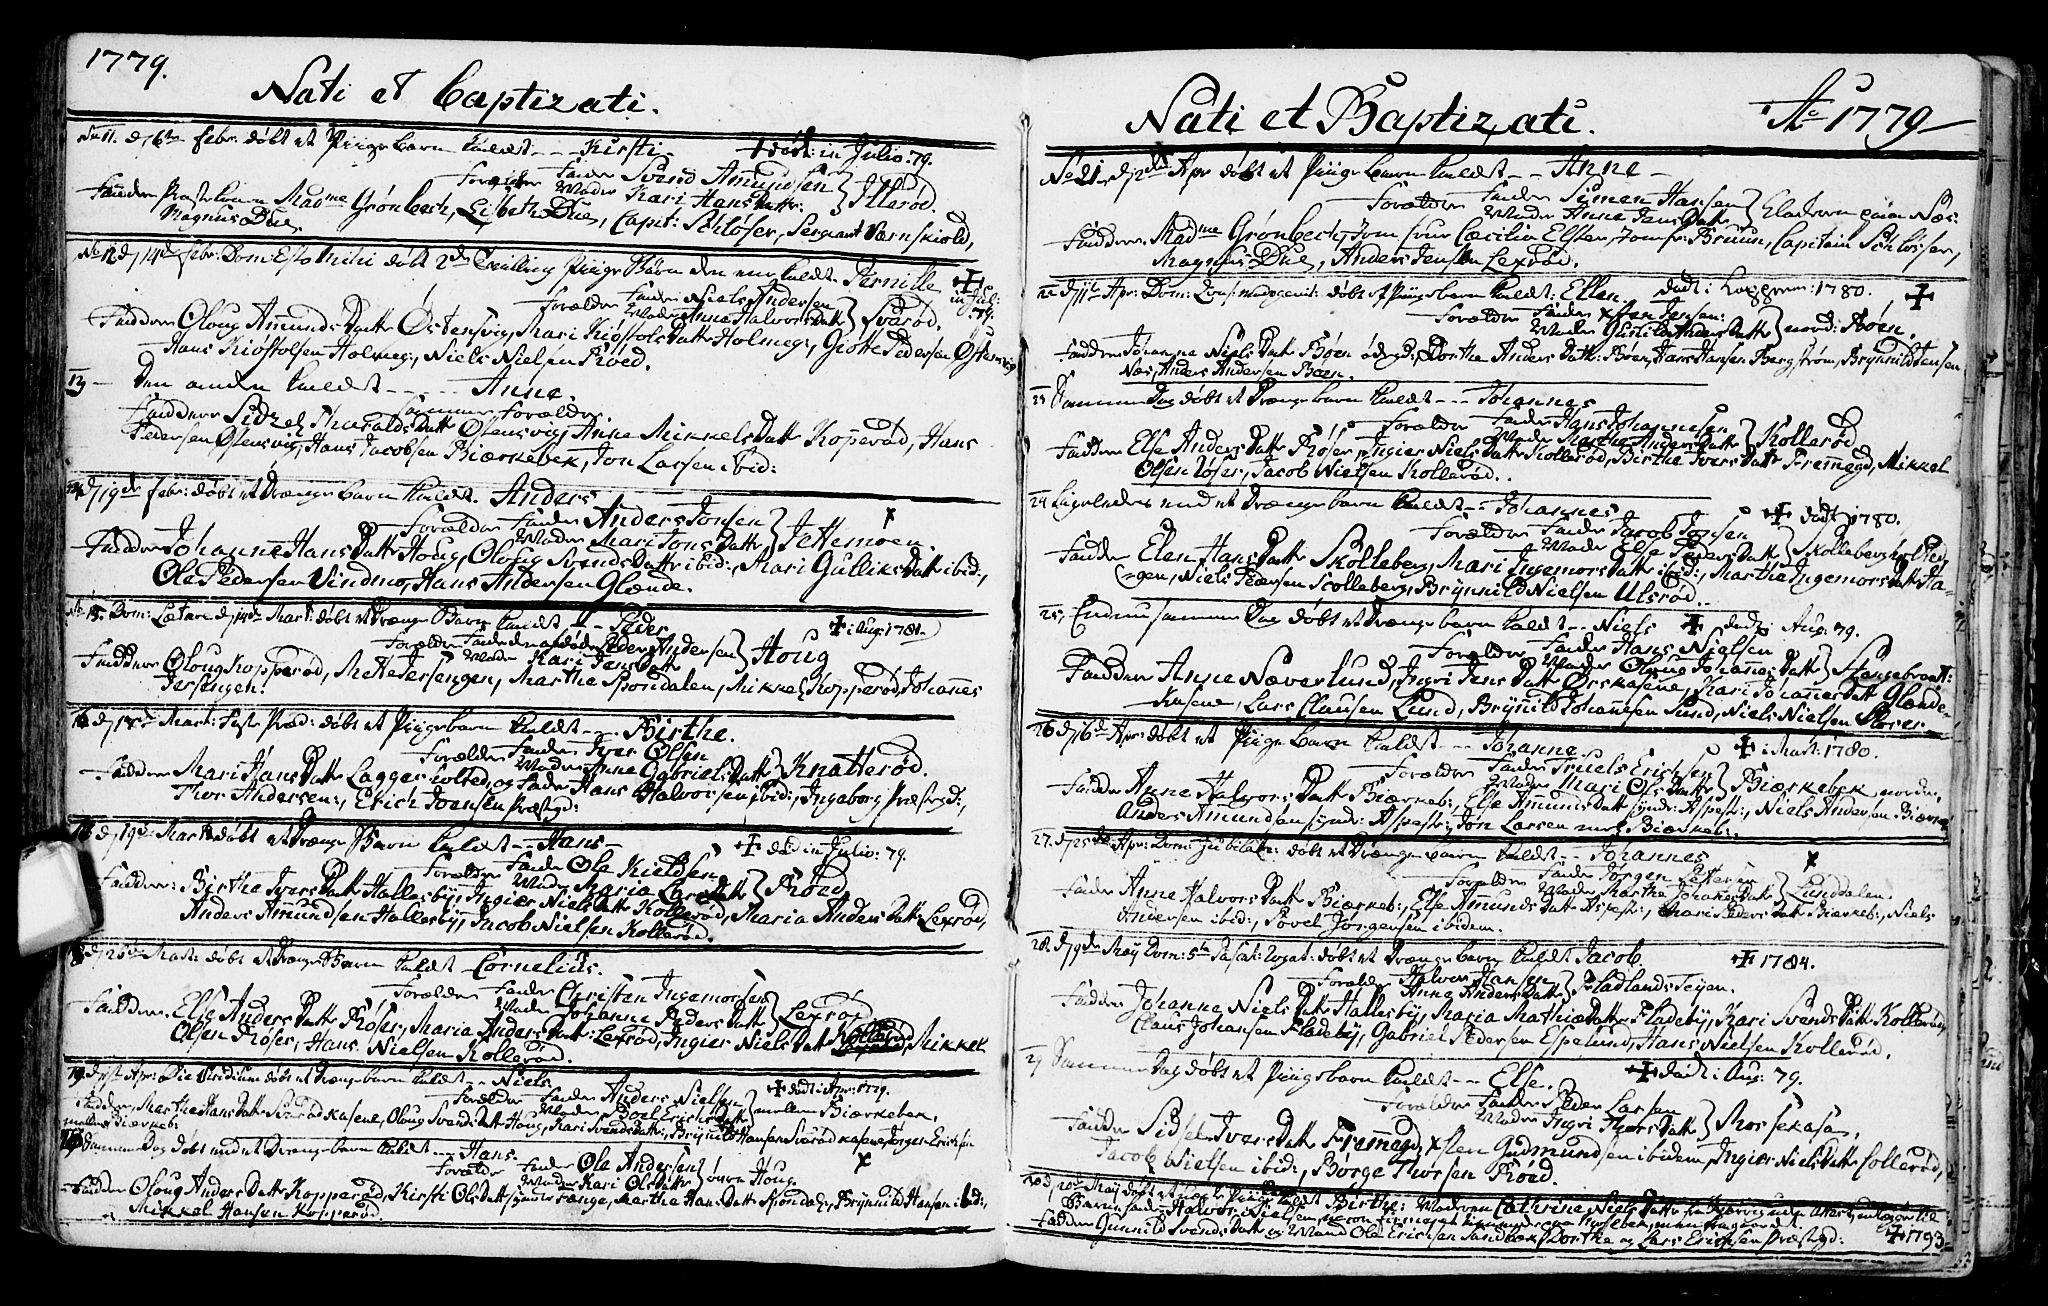 1779.
Nati et Baptizati.
No 11. d 16de febr: døbt et Piigebarn kaldt - - - Kirsti. + død: in Julio: 79.
Forældre Fader Svend Amundsen
Moder Kari HansDatter } Itterød.
Faddere Madme Grönbech, Lisbeth Due, Capit: Schløser, Sergiant Værnskiold,
Magnus Due.
No 12 d 14de febr: Dom: Esto Mihi døbt 2de Tvilling Piige Børn den ene kaldt. Pernille +
in Jul: 79.
Forældre Fader Niels Andersen
Moder Anne HalvorsDatter } Sværød.
Faddere Oloug AmundsDatter Østensvig, Mari KiøstolsDatter Holmeg:, Giotte Pedersen Østensvig
Hans Kiøstolsen Holmeg:, Niels Nielsen Röed.
13 - Den anden kaldt - - - - Anne.
Samme Forældre.
Faddere Sidzel HaraldsDatter Ostensvig, Anne MikkelsDatter Koperød, Hans
Pedersen Ostensvig, Hans Jacobsen Biærkebek, Jon Larsen ibid:
14 d 19de febr: døbt et Drængebarn kaldt. Anders
Forældre Fader Anders Jonsen
Moder Mari JonsDatter } Jettemoen.
Faddere Johanne HansDatter Houg, Oloug SvendsDatter ibid:, Mari GulliksDatter ibid:,
Ole Pedersen Vindmo, Hans Andersen Glænde.
No 15. Dom: Lætare d 14de Mart: døbt et Drænge Barn kaldt - - Peder + i Aug: 1781.
Forældre Fader den afdøde Peder Andersen
Moder Kari JensDatter } Houg
Faddere Oloug Kopperød, Mette Jersengen, Martha Spondalen, Mikkel Kopperød, Johannes
Jersengen.
16 d 18de Mart: døbt et Piigebarn kaldt - - - Birthe.
Forældre Fader Iver Olsen
Moder Anne GabrielsDatter } Knatterød.
Faddere Mari HansDatter Laggerholted, Hans Halvorsen ibid:, Ingeborg Præstegd:,
Thor Andersen:, Erich Joensen Præstgd:
17 d 19de Mart: døbt et Drænge Barn kaldt - - Hans - + død in Julio: 79.
Forældre Fader Ole Kieldsen
Moder Maria LarsDatter } Röed,
Faddere: Birtha IversDatter Hallesby, Ingier NielsDatter Kollerød, Maria AndersDatter Lexrød,
Anders Amundsen Hallesby, Jacob Nielsen Kollerød.
18 d 25de Mart: døbt et Drænge Barn kaldt Cornelius.
Forældre Fader Christen Ingemorsen
Moder Johanne PedersDatter } Lexrød
Faddere. Else AndersDatter Röser, Maria AndersDatter Lexrød, Ingier NielsDatter Kollerød, Mikkel
Olsen Röser, Hans Nielsen Kollerød.
19. d 1ste Apr: Die Viridium døbt et Drængebarn kaldt - - Niels + død i Apr: 1779.
Forældre Fader Anders Nielsen
Moder Boel ErichsDatter } mellem Biærkebek.
Faddere, Martha HansDatter Sværødkasene, Oloug SvendsDatter Houg, Kari SvendsDatter:, Brynild Hansen Sværødkasene, Jørgen Erichsen
mellem Biærkeb:
20 Samme Dag døbt med et Drængebarn kaldt - - - Hans.
Forældre Fader Ole Andersen
Moder Kari OlsDatter } øvren Houg.
Faddere Oloug AndersDatter Kopperød, Kirsti OlsDatter synder Fange, Martha HansDatter Spondalen, Brynild Hansen ibid:,
Mikkel Hansen Kopperød.
Nati et Baptizati. Ao 1779
No 21. d 2den Apr døbt et Piigebarn kaldt - - Anne -
Forældre Fader Simen Hansen
Moder Anne JensDatter } Næs:
Faddere. Madme Grönbech, Jomfrue Cæcilia Elster, Jomfr: Bruun, Capitain Schløser,
Magnus Due, Anders Jensen Lexrød.
22 d 11te Apr: Dom: Quasimodogenit: døbt et Piigebarn kaldt: Ellen. + 1780.
Forældre Fader Sten Jensen:
Moder Gunild AndersDatter } nord: Böen.
Faddere Johanne NielsDatter Böen ødegd:, Dorthe AndersDatt: Böen, Hans Hansen Bergström, Brynild Jensen
Næs, Anders Andersen Böen.
23 Samme Dag døbt et Drængebarn kaldt - - - Johannes
Forældre Fader Hans Johannesen
Moder Martha AndersDatter } Kollerød
Faddere Else AndersDatter Röser, Ingier NielsDatter Kollerød, Birthe IversDatter Fremnegd, Mikkel
Olsen Röser, Jacob Nielsen Kollerød.
24 Ligeledes med et Drængebarn kaldt - - Johannes + død 1780.
Forældre Fader Jacob Jonsen
Moder Else PedersDatter } Skolleberg
Faddere Elen HansDatter Skolleberg, Mari IngemorsDatter ibid:, Martha IngemorsDatter Ha-
gen, Niels Pedersen Scolleberg, Brynnild Nielsen Ulsrød.
25, Endnu samme Dag døbt et Drængebarn kaldt - - Niels + død i Aug: 79.
Forældre Fader Hans Nielsen
Moder Oloug JohannesDatter } Stangebraat:
Faddere Anne Næverlund, Ingri JensDatter Ørskasene, Mari JohannesDatter Glænde-
kasene, Lars Clausen Lund, Brynild Johannesen Lund, Niels Nielsen Skorer.
26 d 16de Apr: døbt et Piigebarn kaldt - - Johanne + i Mart: 1780.
Forældre Fader Truels Erichsen
Moder Mari OlsDatter } Biærkebek norden,
Faddere Anne HalvorsDatter Biærkeb:, Else AmundsDatter syndr: Aspestr:, Niels Andersen Biærkeb:
Anders Amundsen syndr: Aspestr:, Jon Larsen nord Biærkeb:.
27. d 25de Apr: Dom: Jubilate: døbt et Drængebarn kaldt - - Johannes
Forældre Fader Jorgen Pettersen
Moder Martha JohannesDatter } Lunddalen.
Faddere Anne HalvorsDatter Biærkeb:, Else AmundsDatter Aspestr:, Mari PedersDatter Biærkeb:, Niels
Andersen ibid:, Povel Jørgensen ibidem.
28. d 9de Maj Dom: 5te Pascat: Rogat: døbt et Drængebarn kaldt Jacob + 1784.
Forældre Halvor Hansen
Anne AndersDatter } Fladlands Teijen.
Faddere Johanne NielsDatter Hallesby, Maria MathiæDatter Fladeby, Kari SvendsDatter Kollerød,
Claus Johansen Fladeby, Gabriel Pedersen Espelund, Hans Nielsen Kollerød.
29 Samme Dag døbt et Piigebarn kaldt - - Else. + død i Aug: 79.
Forældre Fader Peder Larsen
Moder Ingri ThorsDatter } Morsekasa.
Faddere Sidsel IversDatter Fremnegd, Sten Gudmundsen ibidem, Ingier NielsDatter Kollerød,
Jacob Nielsen ibid:, Börge Thorsen Röed.
30 d 20de Maj døbt et uægte Piigebarn kaldt Birthe: Moderen Cathrine NielsDatter
Barnefader Halvor Nielsen
Faddere Gunnild SvendsDatter og Mand Ole Erichsen Sandbek, Dorthe og Lars Erichsen Præstgd: + 1793